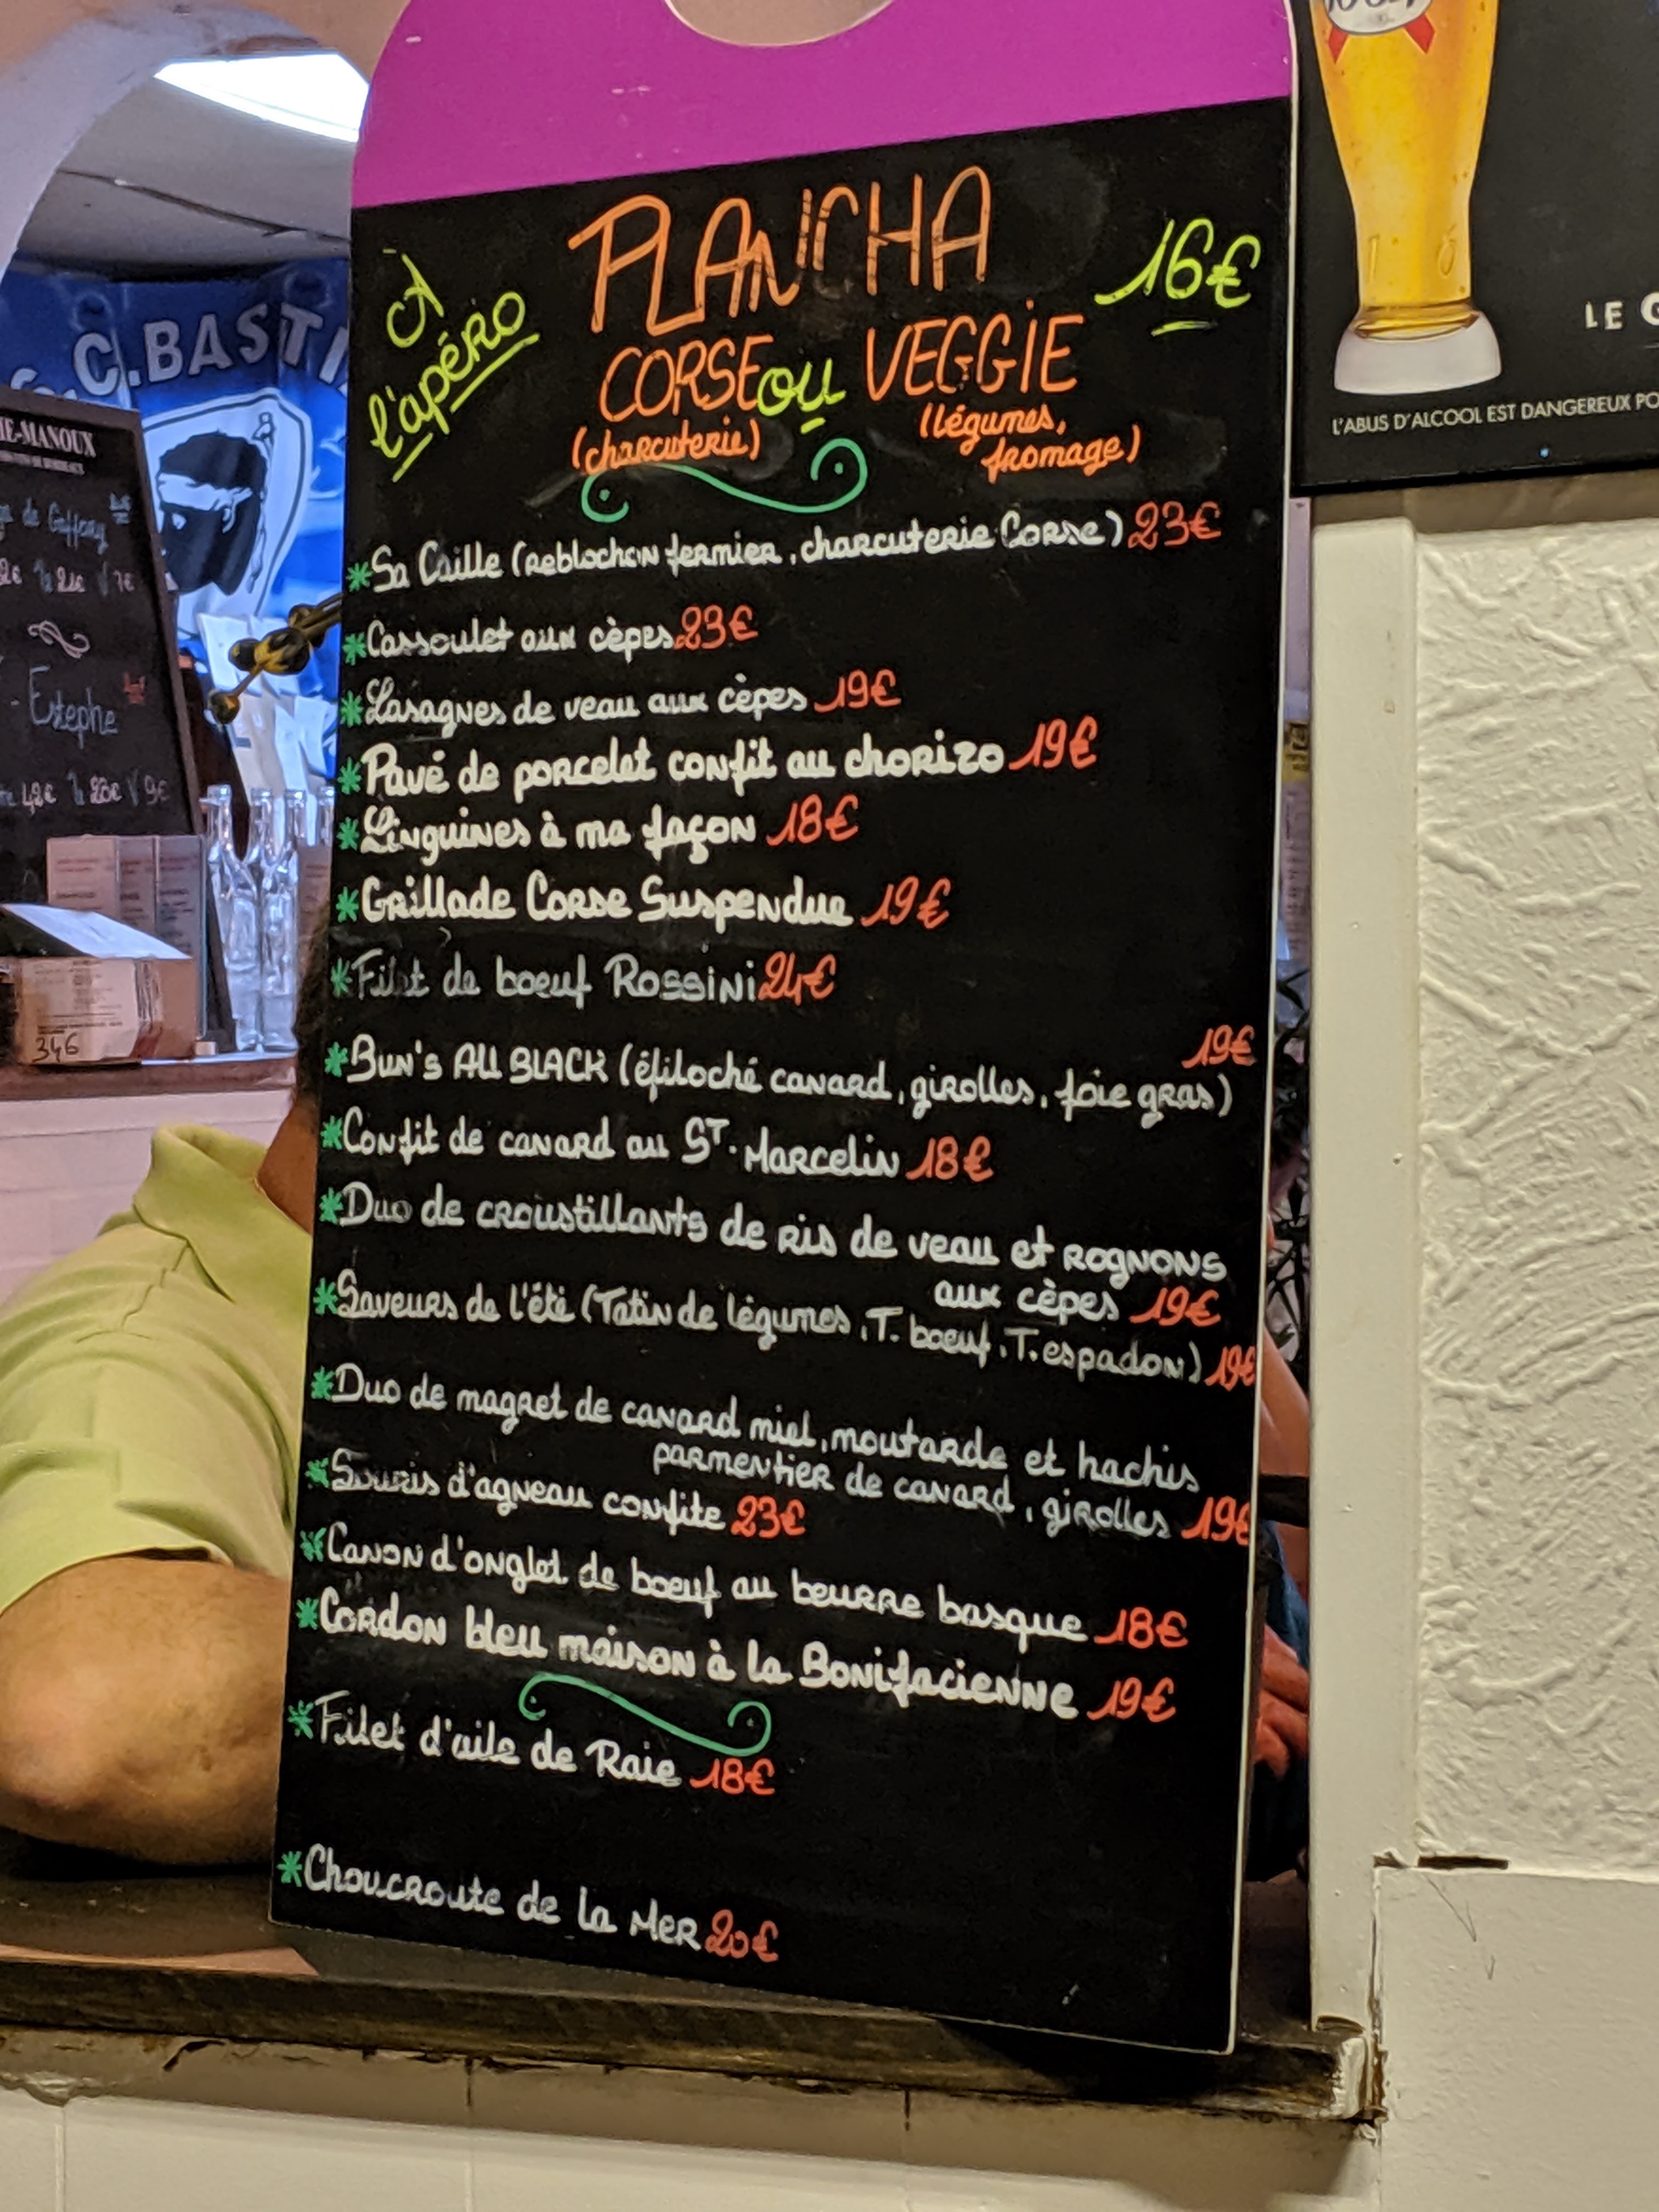 PLANCHA
À l'apéro
16€
CORSE ou VEGGIE
(charcuterie)
(légumes,
fromage)
*Sa Caille (reblochon fermier, charcuterie Corse) 23€
*Cassoulet aux cèpes 23€
*Lasagnes de veau aux cèpes 19€
*Pavé de porcelet confit au chorizo 19€
*Linguines à ma façon 18€
*Grillade Corse Suspendue 19€
*Filet de boeuf Rossini 24€
19€
*Bun's All BLACK (éfiloché canard, girolles, foie gras)
*Confit de canard au ST. Marcelin 18€
*Duo de croustillants de ris de veau et rognons
aux cèpes 19€
*Saveurs de l'été (Tatin de légumes, T. boeuf, T. espadon) 19€
*Duo de magret de canard miel, moutarde et hachis
parmentier de canard, girolles 19€
*Souris d'agneau confite 23€
*Canon d'onglet de boeuf au beurre basque 18€
*Cordon bleu maison à la Bonifacienne 19€
*Filet d'aile de Raie 18€
*Choucroute de la Mer 20€
C.BASTI
IE-MANOUX
de Gaffray
21€ 7€
- Estephe
42€ 20€ 9€
346
LE G
L'ABUS D'ALCOOL EST DANGEREUX PO